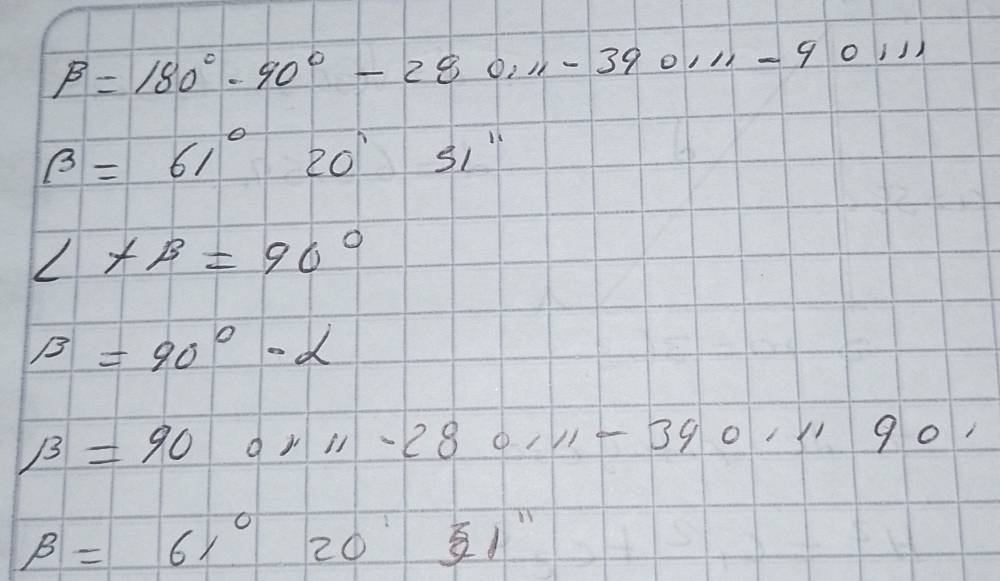 β = 180° - 90° - 28 0," - 39 0,,," - 9 0,,,
β = 61° 20' 51"
∠ + β = 90°
β = 90° - α
β = 90 0,," - 28 0,," - 39 0,," 9 0,
β = 61° 20' 51"